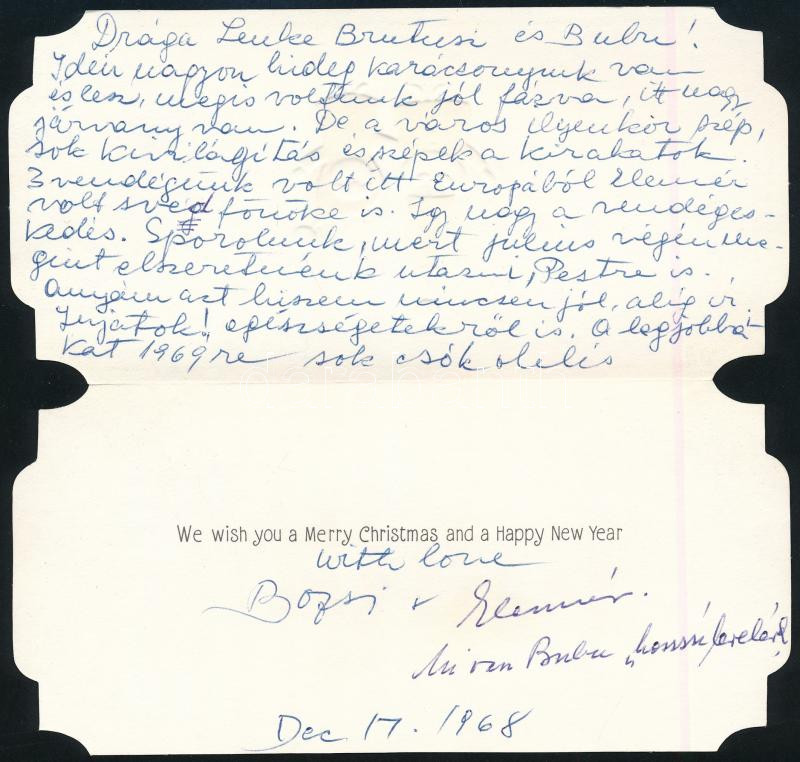 Drága Lenke Brutusi és Bubu!
Idén nagyon hideg karácsonyunk van
és lesz, mégis voltunk jól fázva, itt nagy
járvány van. De a város ilyenkor szép,
sok kivilágítás és szépek a kirakatok.
3 vendégünk volt itt Európából Elemér
volt svéd főnöke is. Így nagy a vendéges-
kedés. Spórolunk, mert július végén me-
gint elszeretnénk utazni, Pestre is.
Anyám azt hiszem nincsen jól, alig ír
Irjatok! egészségetekről is. A legjobba-
kat 1969re sok csók ölelés
We wish you a Merry Christmas and a Happy New Year
With love
Bozsi + Elemér.
Mi van Bubu „hosszú levelével?
Dec 17. 1968